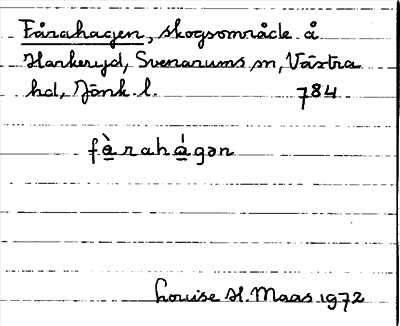 Fårahagen, skogsområde å
Harkeryd, Svenarums sn, Västra
hd, Jönk. l. 784
fà̲rahá̲gən
Louise H. Maas 1972